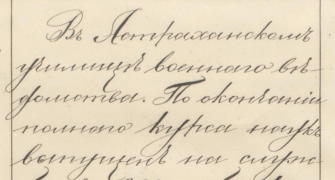 Въ Астраханскомъ
училищѣ военнаго вѣ-
домства. По окончаніи
полнаго курса наукъ
вступилъ на служ-